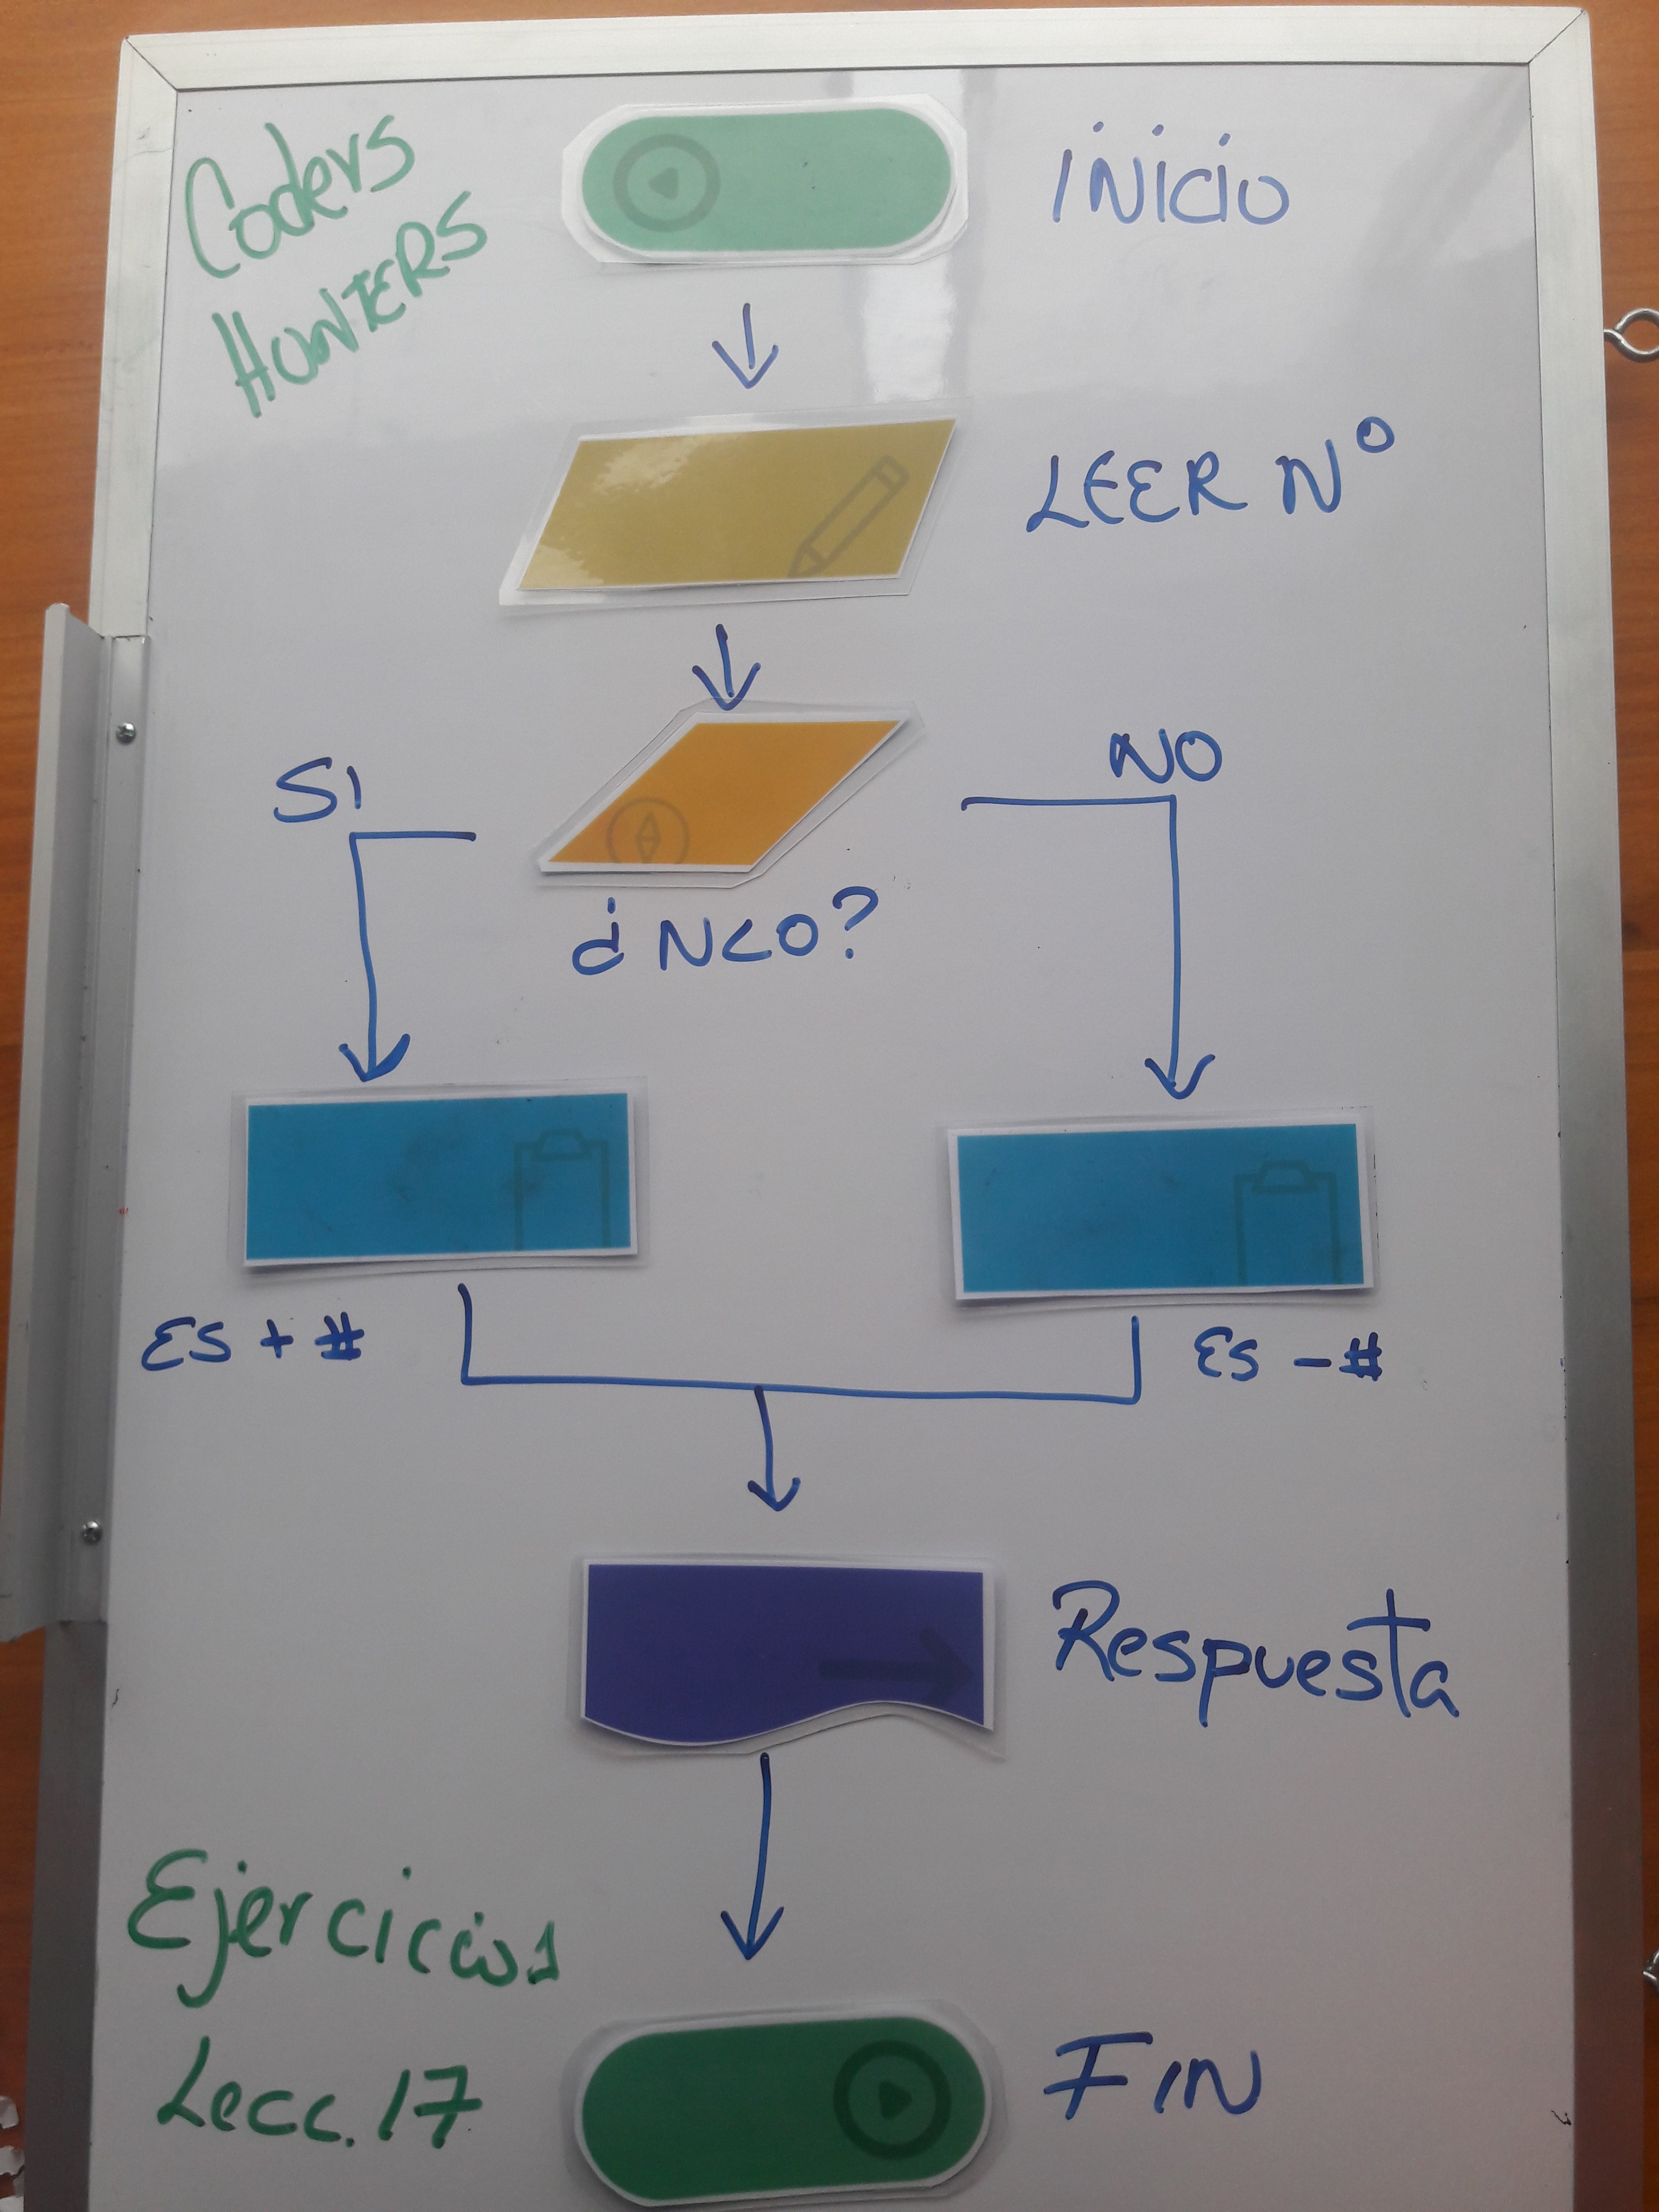 Coders
HUNTERS
INICIO
LEER Nº
SI
NO
¿N<0?
ES + #
ES - #
Respuesta
Ejercicios 1
Lecc. 17
FIN